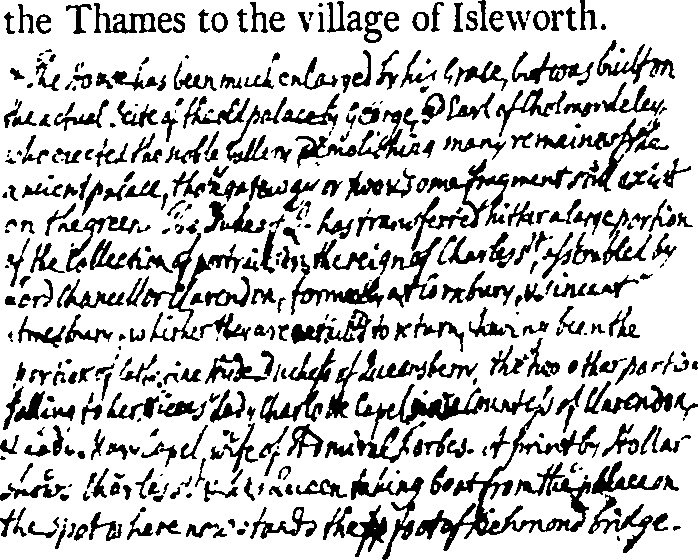 the Thames to the village of Isleworth.
The House has been much enlarged by his Grace, but was built on
the actual scite of the old palace by George, 3d Earl of Cholmondeley,
who erected the noble gallery demolishing many remaines of the
ancient palace, tho a gateway or two & some fragment still exist
on the green. The Duke of Q. has transferred hither a large portion
of the Collection of portraits in the reign of Charles 1st, assembled by
Lord Chancellor Clarendon, formerly at Cornbury, & since at
Amesbury, whither they are to return, having been the
portion of Catherine Hyde Duchess of Queensberry, the two other portions
falling to her nieces Lady Charlotte Capel Countess of Clarendon,
& Lady Mary Capel, wife of Admiral Forbes. A print by Hollar
shows Charles 1st & his Queen taking boat from the palace on
the spot where now stands the foot of Richmond bridge.